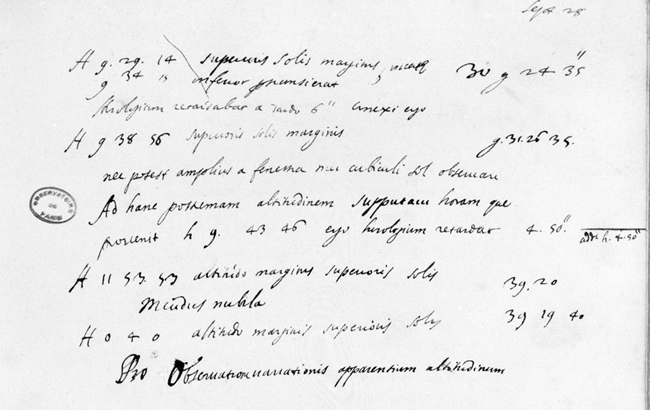 Sept 28
H 9. 29. 14 superioris solis marginis, 30 g 24 35"
9 34 inferior
horologium retardabat a 6"
H 9 38 56 superioris solis marginis g. 31. 26 35.
nec potest amplius a fenestra cubiculi sol observari
Ad hanc postremam altitudinem supputavi horam que
provenit h 9. 43 46 ergo horologium retardat 4. 50"
addit h. 4. 50"
H 11 53. 53 altitudo marginis superioris solis 39. 20
nubila
H 0 4 0 altitudo marginis superioris solis 39 19 40
Pro Observatione variationis apparentium altitudinum
OBSERVATOIRE DE PARIS